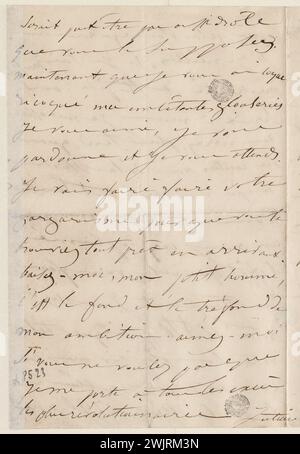 serait peut-être pas aussi drôle
que vous le supposez,
maintenant que je vous ai
mes
Je vous aime, je vous
pardonne et je vous attends.
Je vais faire faire votre
pour que vous le
trouviez tout prêt en arrivant
baisez-moi, mon petit homme,
c'est le fond et le tréfond de
mon ambition. aimez-moi
si vous ne voulez pas que
je me porte à tous les excès
les plus révolutionnaires
Juliette
alamy
Image ID: 2WJRM3N
www.alamy.com